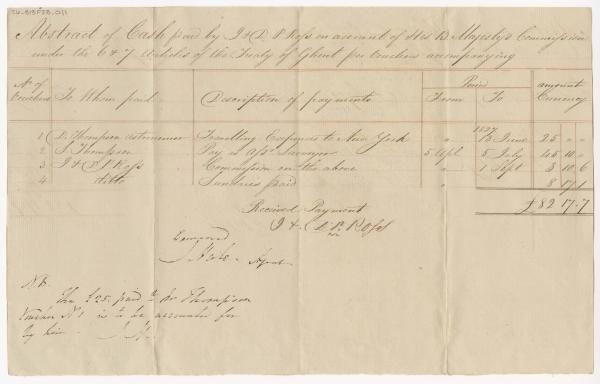 Abstract of Cash paid by J & D. P. Ross on account of His B. Majesty's Commission
under the 6 & 7 Articles of the Treaty of Ghent per vouchers accompanying
No of Vouchers To Whom paid Description of payments Period From To amount Currency
1827
1 D. Thompson astronomer Travelling Expences to New York " 13 June 25 " "
2 S. Thompson Pay as Assr Surveyor 5 Apl 5 July 45 10 "
3 J & D. P. Ross Commission on the above " 1 Sept 3 10 6
4 ditto Sundries paid " 8 17 1
£82 17.7
Received Payment
J & D. P. Ross
Examined
J. Hale Agent
N.B.
The £25 paid to Mr Thompson
Voucher No 1 is to be accounted for
by him. J. H.